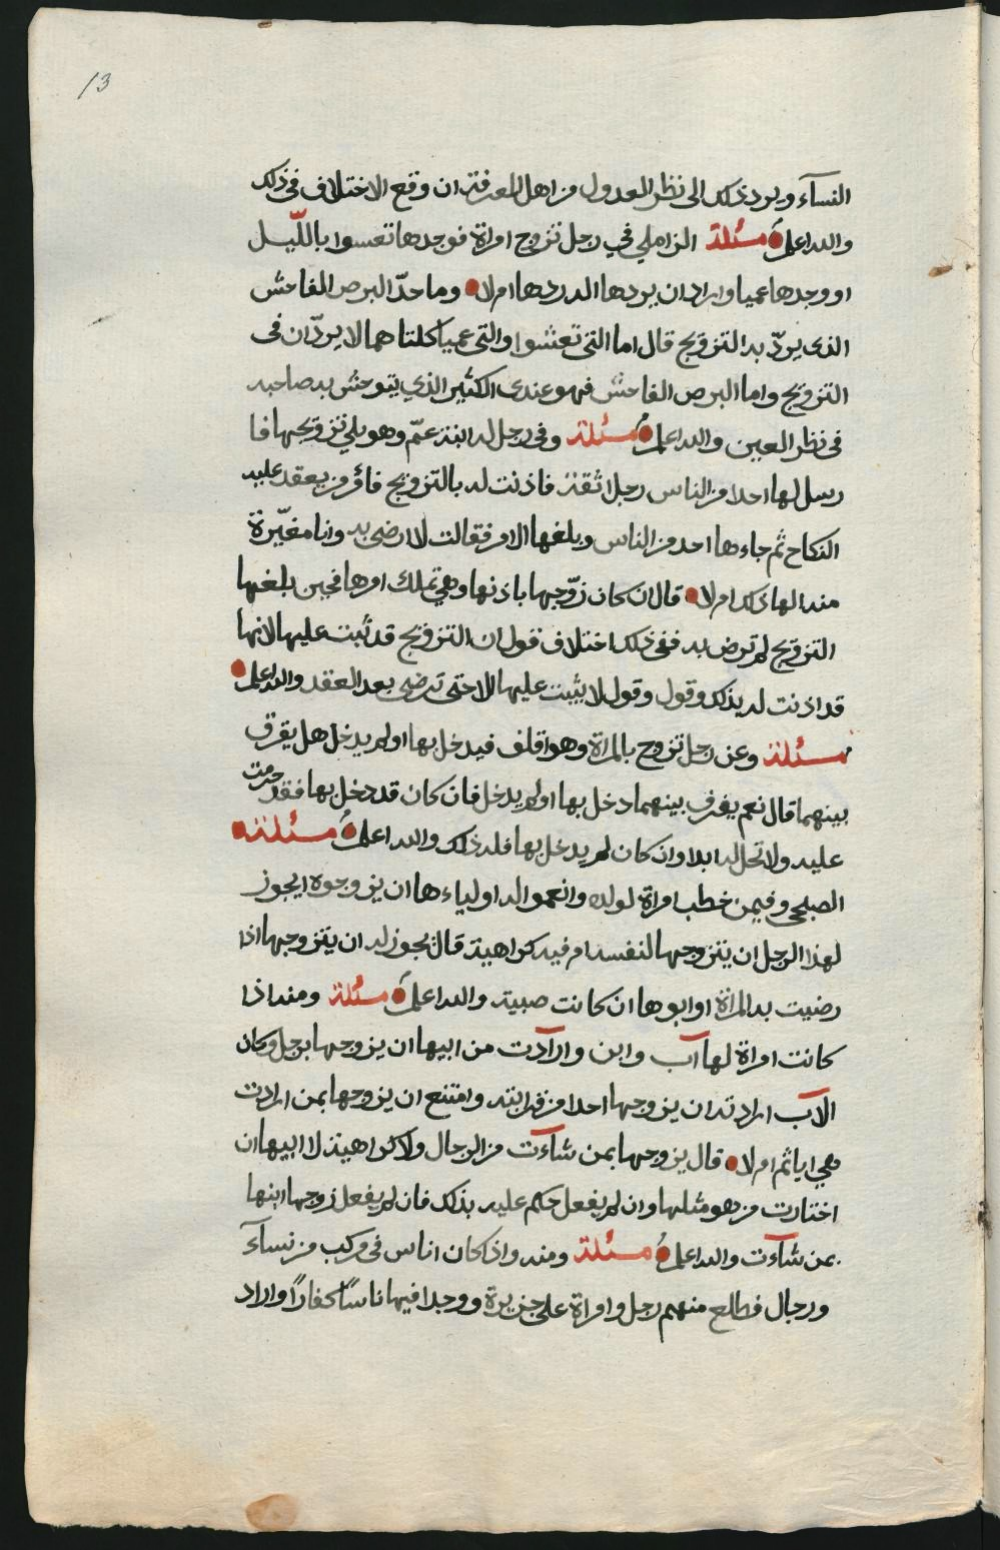 13
النسآء ويرد ذلك الى نظر العدول من اهل المعرفة ان وقع الاختلاف فى ذلك
والله اعلم مسئلة الزاملي في رجل تزوج امراة فوجدها تعسوا بالليّل
او وجدها عميا واراد ان يردها اله ردها ام لا وما حدّ البرص الفاحش
الذى يردّ به التزويج قال اما التى تعشوا والتى عميا كلتا هما لا يردّان فى
التزويج واما البرص الفاحش فهو عندى الكثير الذي يتوحش به صاحبه
فى نظر العين والله اعلم مسئلة وفى رجل له ابنة عمّ وهو يلي تزويجها فا
رسل لها احدا من الناس رجلا ثقة فاذنت له بالتزويج فاؤمر من يعقد عليه
النكاح ثم جاءها احد من الناس وبلغها الامر فقالت لا ارضى به وانا مغيّرة
منه الها ذلك ام لا قال ان كان زوّجها باذنها وهي تملك امرها فحين بلغها
التزويج لم ترض به ففى ذلك اختلاف قول ان التزويج قد ثبت عليها لانها
قد اذنت له بذلك وقول وقول لا يثبت عليها الا حتى ترضى بعد العقد والله اعلم
مسئلة وعن رجل تزوج بالمراة وهو اقلف فيدخل بها اولم يدخل هل يفرق
بينهما قال نعم يفرق بينهما دخل بها اولم يدخل فان كان قد دخل بها فقد حرمت
عليه ولا تحل له ابدا وان كان لم يدخل بها فله ذلك والله اعلم مسئلة
الصلحى وفيمن خطب امراة لولده وانعموا له اولياءها ان يزوجوه ايجوز
لهذا الرجل ان يتزوجها لنفسه ام فيه كراهية قال يجوز له ان يتزوجها اذا
رضيت به المراة او ابوها ان كانت صبية والله اعلم مسئلة ومنه اذا
كانت امراة لها آب وابن وارآدت من ابيها ان يزوجها برجل وكان
الآب اراد تدان يزوجها احدا من قرابته وامتنع ان يزوجها بمن ارادت
هي اياثم ام لا قال يزوجها بمن شآءت من الرجال ولا كراهية لا ابيها ان
اختارت من هو مثلها وان لم يفعل حكم عليه بذلك فان لم يفعل زوجها ابنها
بمن شآءت والله اعلم مسئلة ومنه واذا كان اناس فى مركب من نسآء
ورجال فطلع منهم رجل وامراة على جزيرة ووجدا فيها ناسًا كفارًا واراد